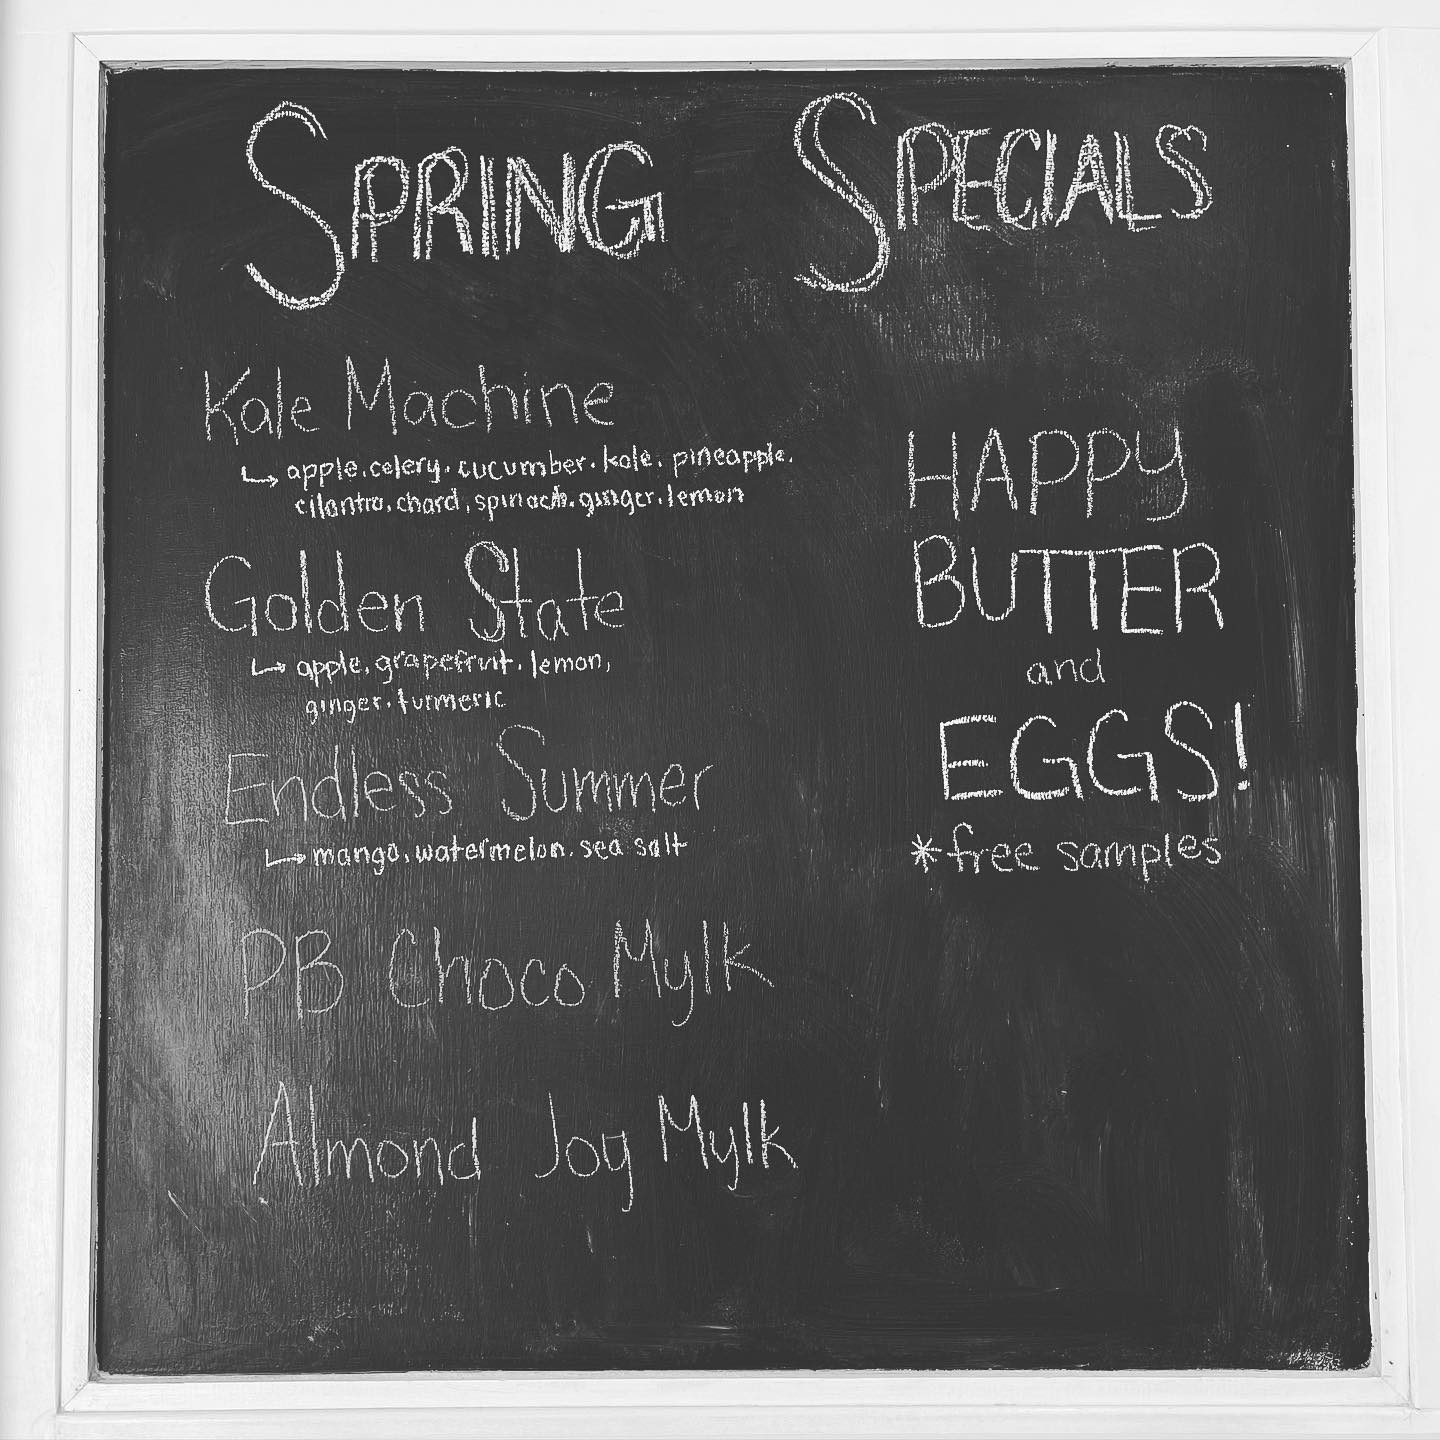 SPRING SPECIALS
Kale Machine
apple. celery. cucumber. kale. pineapple.
cilantro. chard. spinach. ginger. lemon
Golden State
apple. grapefruit. lemon,
ginger. turmeric
Endless Summer
mango. watermelon. sea salt
PB Choco Mylk
Almond Joy Mylk
HAPPY
BUTTER
and
EGGS!
*free samples